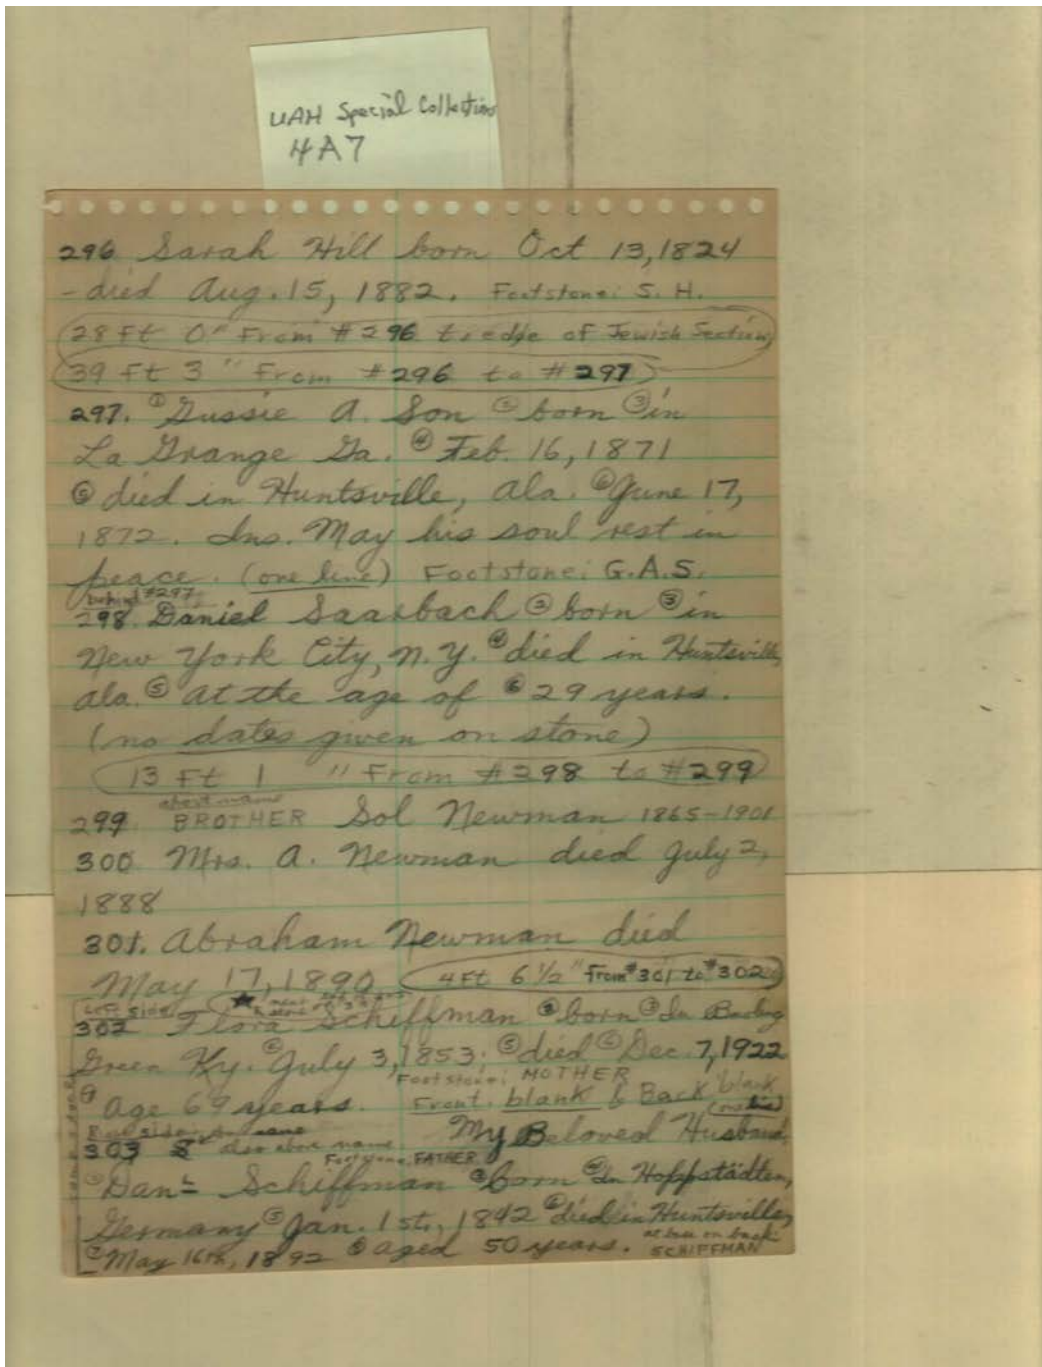 UAH Special Collections
4A7
296. Sarah Hill born Oct 13, 1824
- died Aug. 15, 1882. Footstone: S. H.
28 Ft 0" From #296 to edge of Jewish Section
39 Ft 3" From #296 to #297
297. ① Gussie A. Son ② born ③ in
La Grange Ga. ④ Feb. 16, 1871
⑤ died in Huntsville, Ala. ⑥ June 17,
1872. Ins. May his soul rest in
peace. (one line) Footstone: G.A.S.
behind #297
298. Daniel Saarbach ② born ③ in
New York City, N.Y. ④ died in Huntsville,
Ala. ⑤ at the age of ⑥ 29 years.
(no dates given on stone)
13 Ft 1 " From #298 to #299
above name
299. BROTHER Sol Newman 1865-1901
300 Mrs. A. Newman died July 2,
1888
301. Abraham Newman died
May 17, 1890 4 Ft 6 1/2" From #301 to #302
Left side
302 Flora Schiffman ② born ③ In Bowling
Green Ky. ④ July 3, 1853. ⑤ died ⑥ Dec. 7, 1922
Footstone: MOTHER
⑦ Age 69 years. Front blank & Back blank
(one line)
My Beloved Husband,
303 also above name
Footstone: FATHER
① Danl Schiffman ③ born ④ In Hoppstädten,
Germany ⑤ Jan. 1st, 1842 ⑥ died in Huntsville,
⑦ May 16th, 1892 ⑧ aged 50 years. at base on back:
SCHIFFMAN